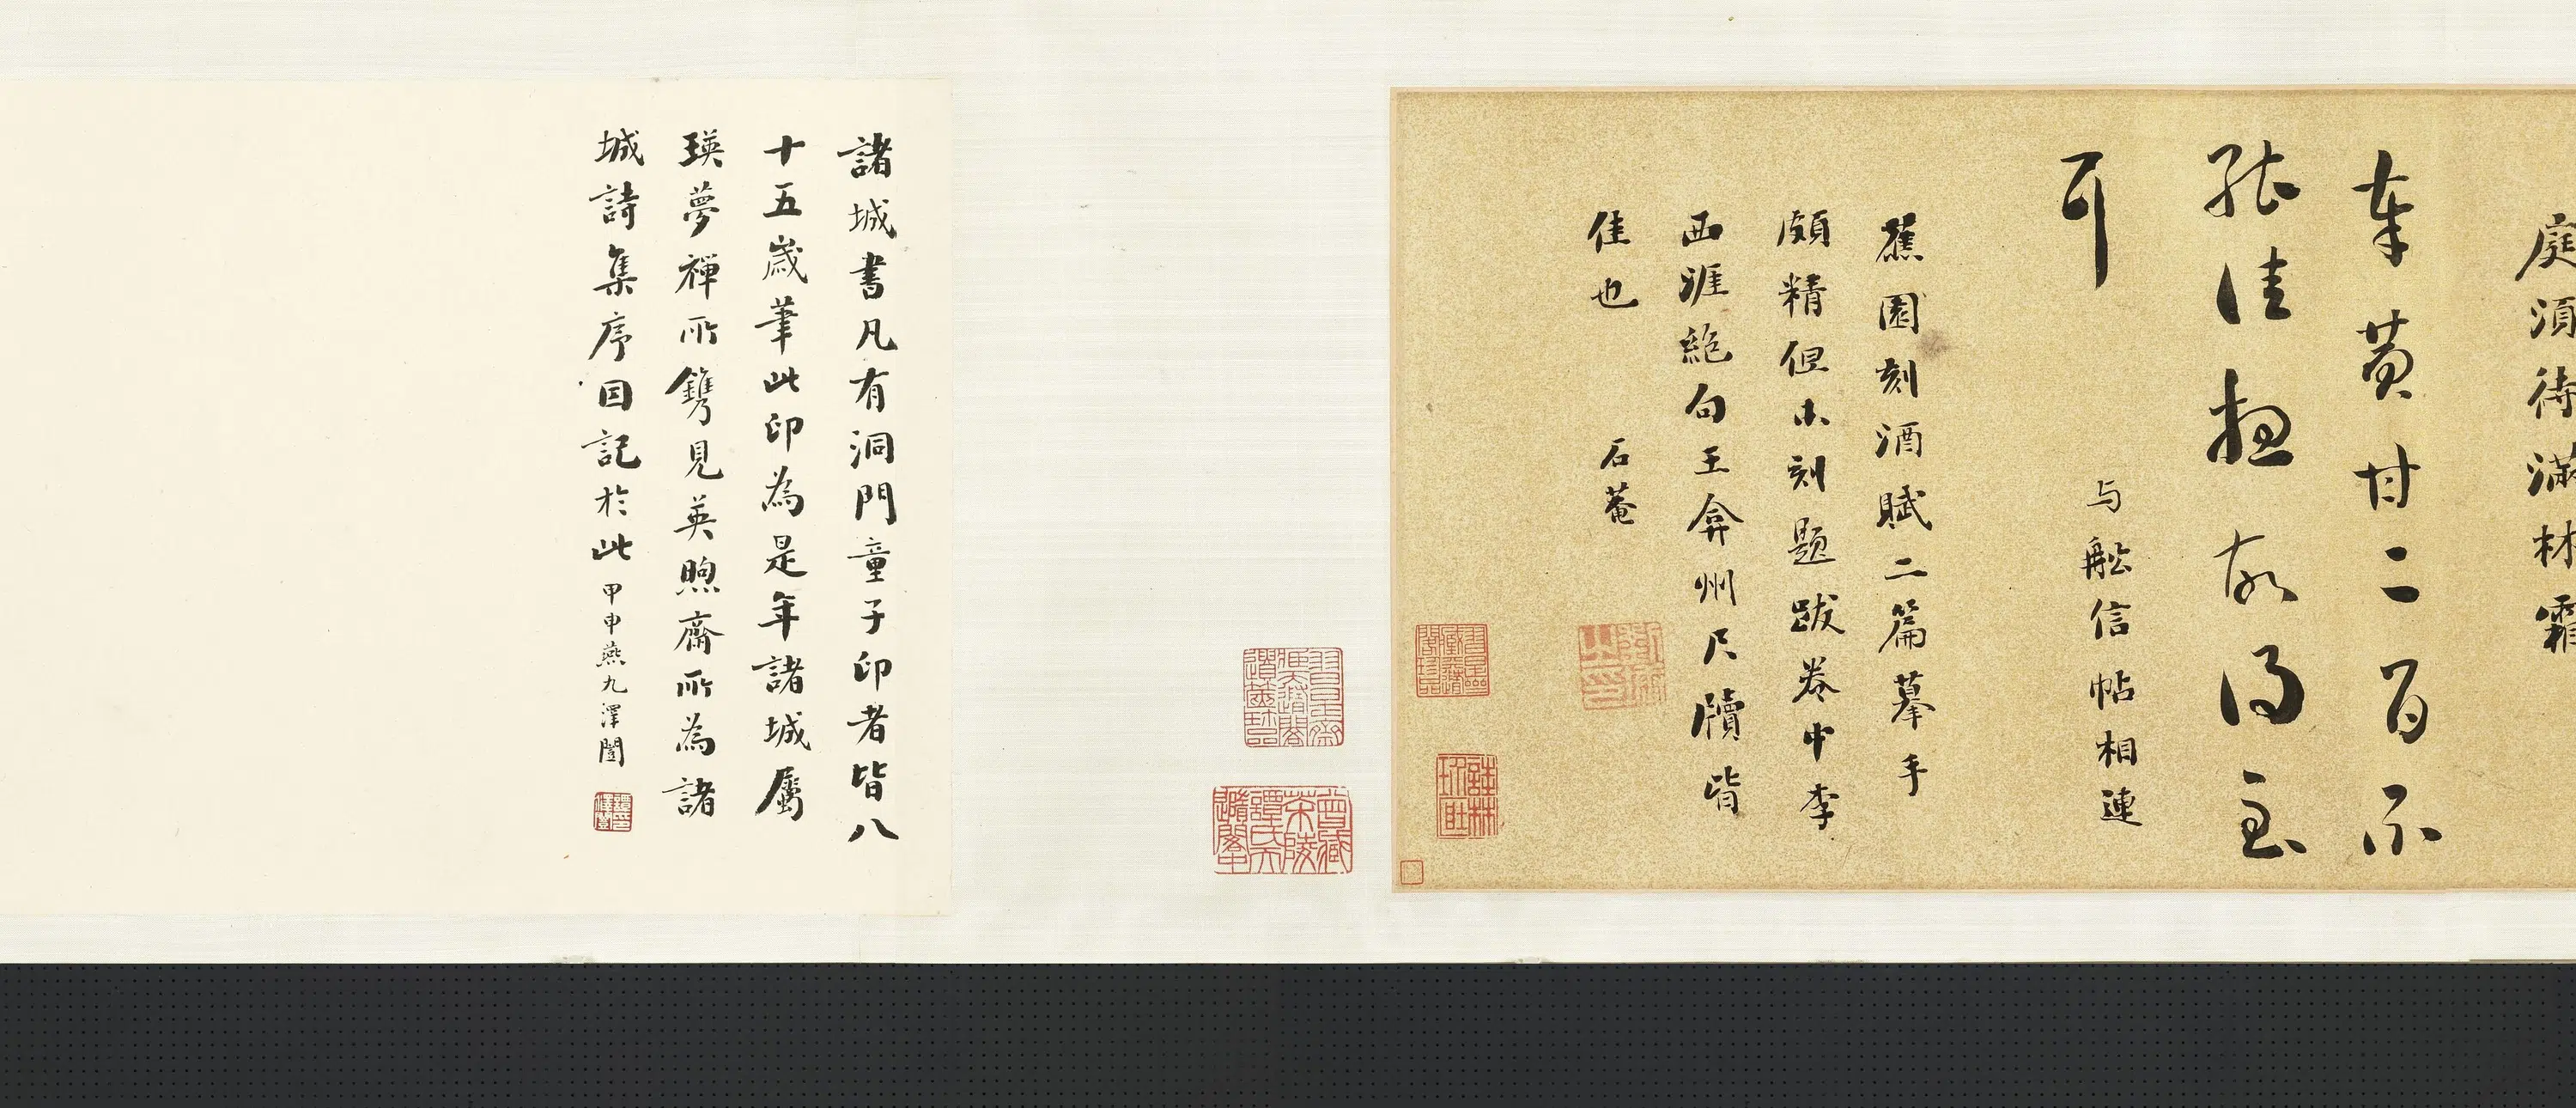 庭須待滿林霜
奉黄甘二百不
能佳想故得至
耳
与船信帖相連
蕉園刻酒賦二篇摹手
頗精但未刻題跋卷中李
西涯絶句王弇州尺牘皆
佳也 石菴
諸城書凡有洞門童子印者皆八
十五歲筆此印為是年諸城屬
瑛夢禪所鐫見英煦齋所為諸
城詩集序因記於此 甲申燕九澤闓